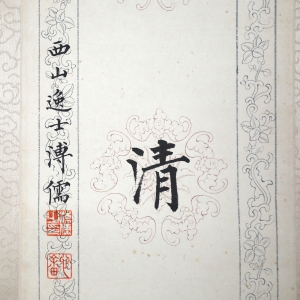 清
西山逸士溥儒